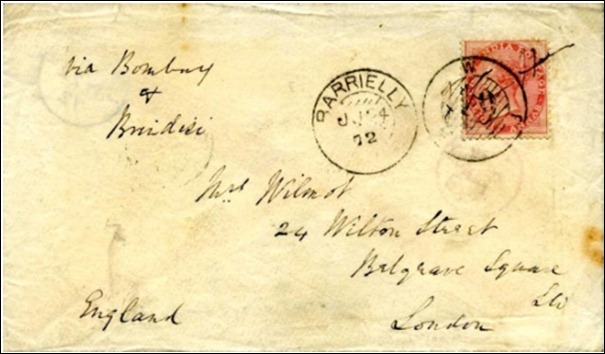 via Bombay
&
Brindisi
BARRIELLY
JU
72
INDIA POSTAGE
Mrs Wilmot
24 Wilton Street
Belgrave Square
London
England